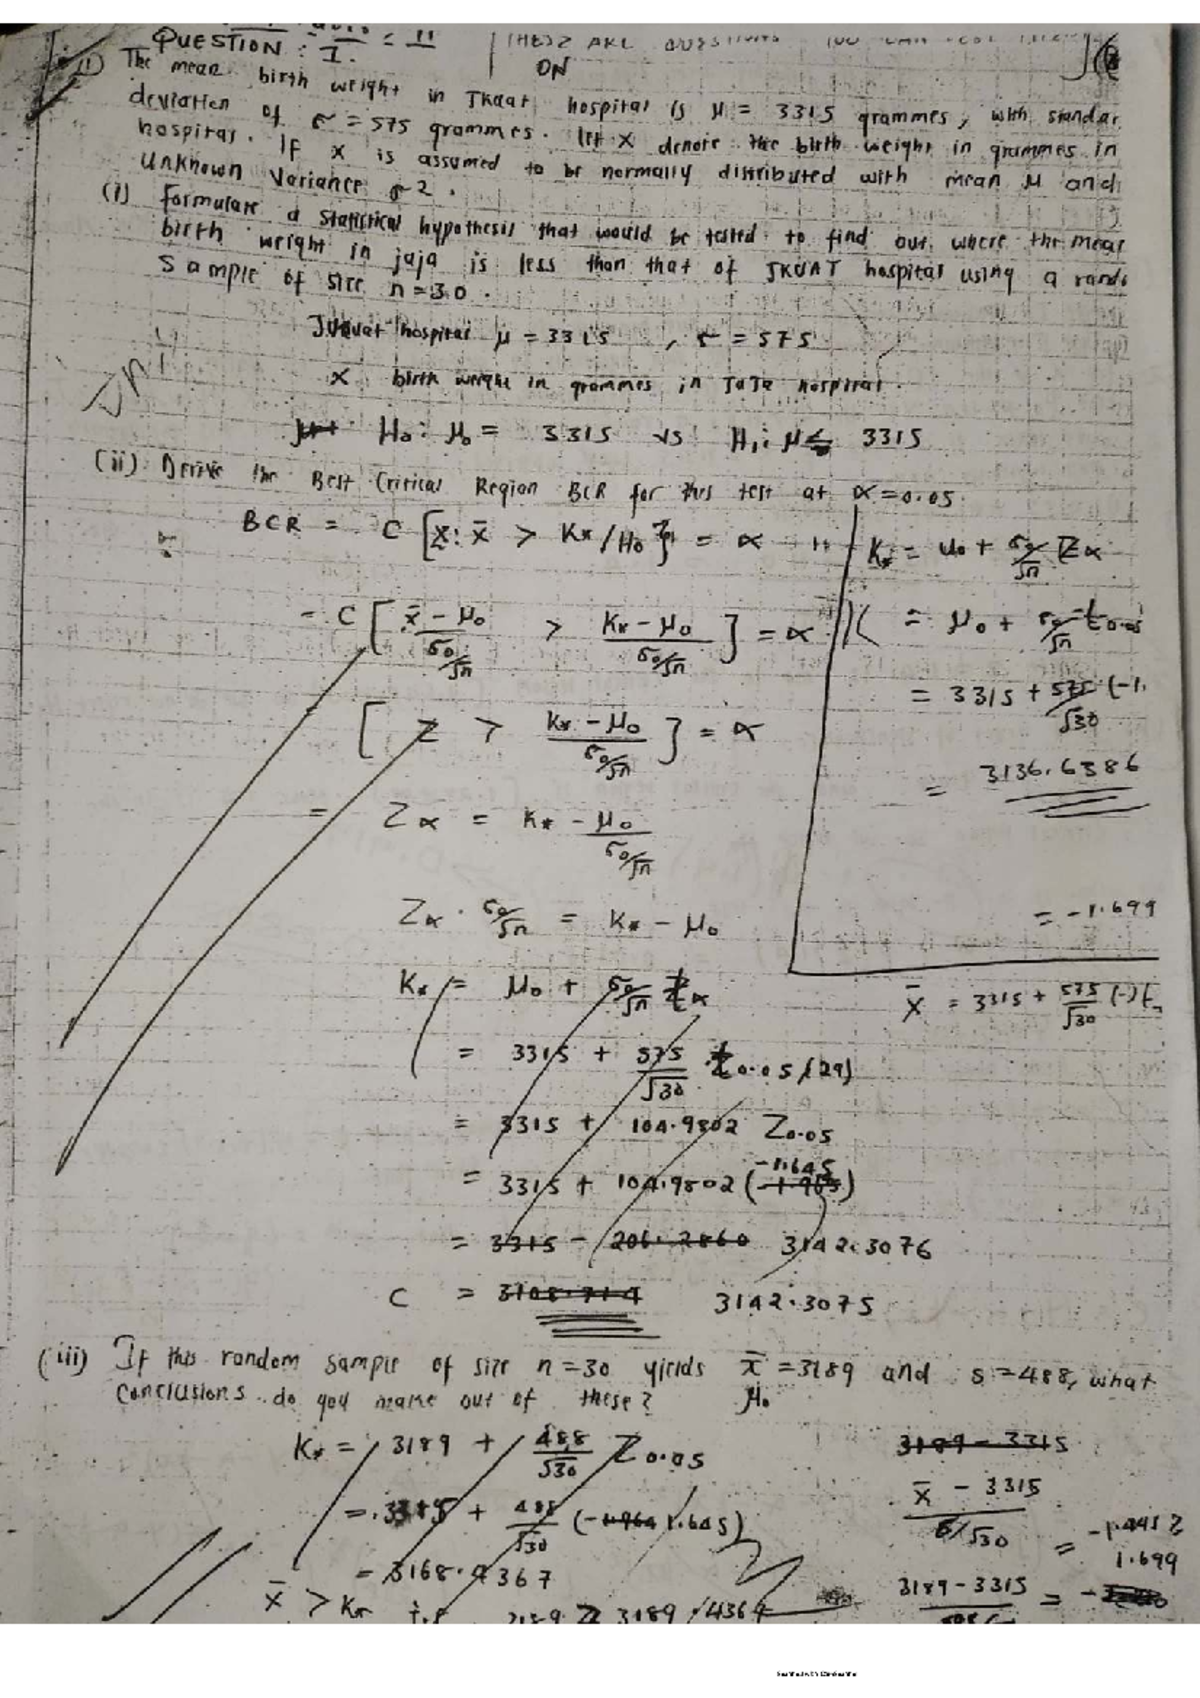 QUESTION : 1.
= 11
THESE ARE QUESTIONS YOU CAN
ON
(1) The mean birth weight in Jkuat hospital is μ = 3315 grammes, with standar
deviation of σ = 575 grammes. let X denote the birth weight in grammes in
hospital. If X is assumed to be normally distributed with mean μ and
unknown variance σ2.
(i) formulate a statistical hypothesis that would be tested to find out where the mean
birth weight in jaja is less than that of JKUAT hospital using a rando
sample of size n=30.
Jkuat hospital μ = 3315 , σ = 575
X birth weight in grammes in JaJa hospital.
H₀: μ₀ = 3315 vs H₁: μ < 3315
(ii) Derive the Best Critical Region BCR for this test at α=0.05
BCR = C [x: x̄ > K*/H₀] = α
K* = μ₀ + σ₀/√n Zα
= C [ (x̄ - μ₀)/(σ₀/√n) > (K* - μ₀)/(σ₀/√n) ] = α
K = μ₀ + σ₀/√n t0.05
= [ Z > (K* - μ₀)/(σ₀/√n) ] = α
= 3315 + 575/√30 (-1.
= 3136.6386
= Zα = (K* - μ₀)/(σ₀/√n)
Zα . σ₀/√n = K* - μ₀
= -1.699
K* = μ₀ + σ₀/√n tα
x̄ = 3315 + 575/√30 (-) t
= 3315 + 575/√30 t0.05 (29)
= 3315 + 104.9802 Z0.05
= 3315 + 104.9802 (-1.645)
= 3315 - 206.2860 3142.3076
C = 3142.3075
(iii) If this random sample of size n=30 yields x̄ =3189 and s=488, what
conclusions do you make out of these? μ₀
K* = 3189 + 488/√30 Z0.05
3189 - 3315
= + 488/√30 ( 1.645)
(x̄ - 3315)/(s/√30) = -1.4452
1.699
= 3168.4367
3189-3315 = -
x̄ > K* i.e